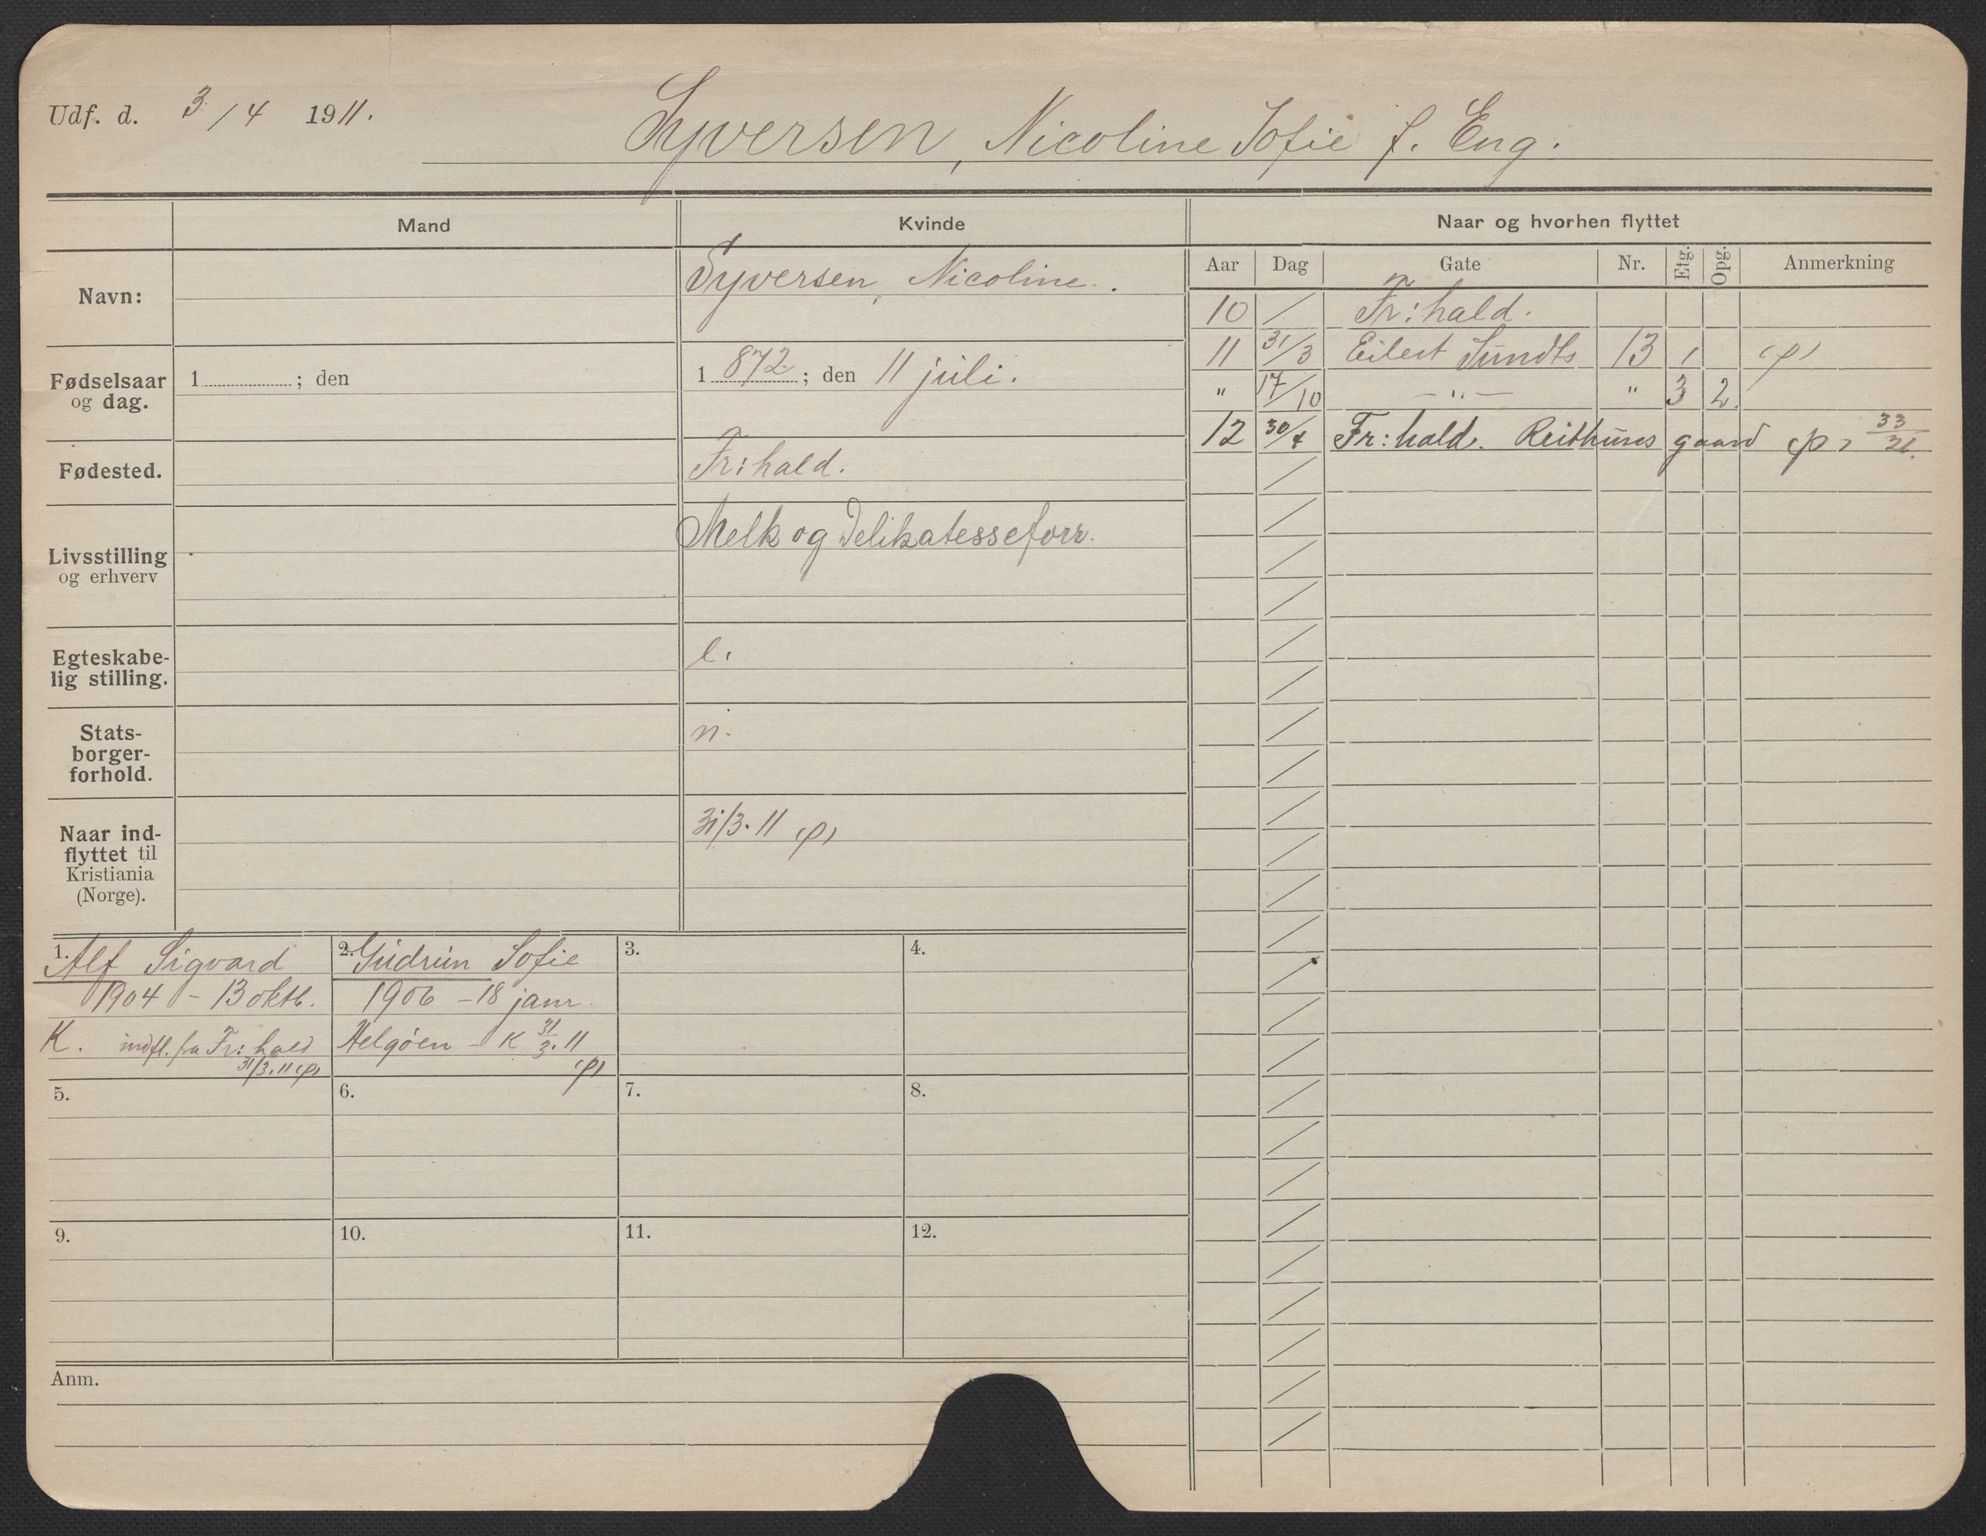 Udf. d. 3/4 1911.
Syversen, Nicoline Sofie f. Eng.
Mand
Kvinde
Naar og hvorhen flyttet
Navn:
Syversen, Nicoline.
Fødselsaar og dag.
1 ; den
1872; den 11 juli.
Fødested.
Fr:hald.
Livsstilling og erhverv
Melk og Delikatesseforr.
Egteskabe-
lig stilling.
e.
Stats-
borger-
forhold.
n.
Naar ind-
flyttet til
Kristiania
(Norge).
31/3. 11 (p)
Aar Dag Gate Nr. Etg. Opg. Anmerkning
10 / Fr:hald.
11 31/3 Eilert Sundts 13 1 (p)
" 17/10 — " — " 3 2
12 30/4 Fr:hald. gaard 33/
1. Alf Sigvard
1904 - 13 oktb.
K. indfl. fra Fr:hald
31/3. 11 (p)
2. Gudrun Sofie
1906 - 18 janr.
Helgøen - K 31/3. 11
(p)
3.
4.
5.
6.
7.
8.
9.
10.
11.
12.
Anm.